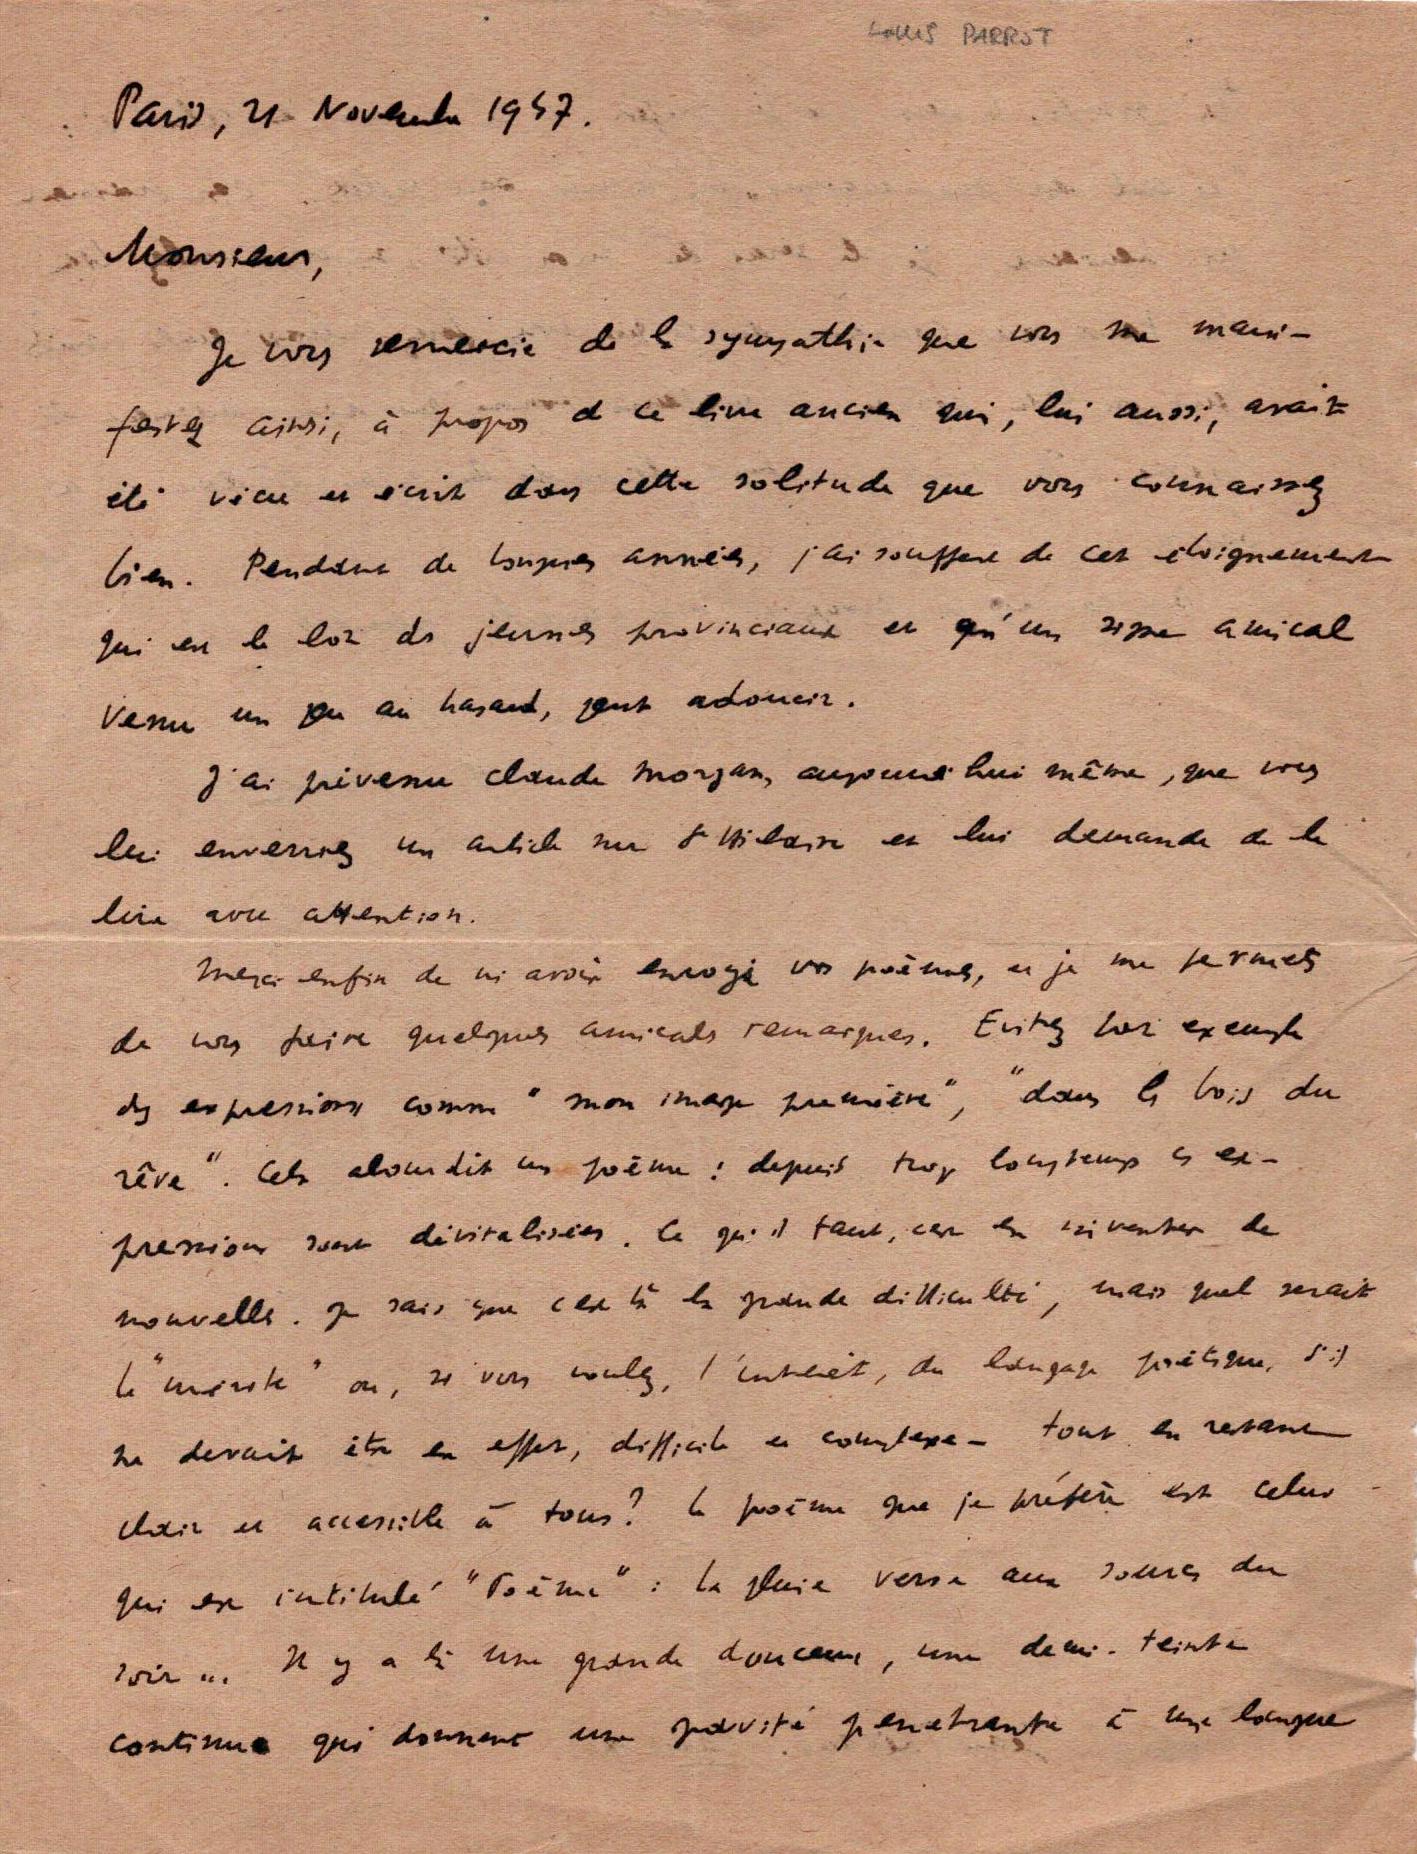 LOUIS PARROT
Paris, 21 Novembre 1947.
Monsieur,
Je vous remercie de la sympathie que vous me mani-
festez ainsi, à propos de ce livre ancien qui, lui aussi, avait
été vécu et écrit dans cette solitude que vous connaissez
bien. Pendant de longues années, j'ai souffert de cet éloignement
qui est le lot des jeunes provinciaux et qu'un signe amical
venu un peu au hasard, peut adoucir.
J'ai prévenu Claude Morgan, aujourd'hui même, que vous
lui enverriez un article sur St Hilaire et lui demande de le
lire avec attention.
Merci enfin de m'avoir envoyé vos poèmes, et je me permets
de vous faire quelques amicales remarques. Evitez par exemple
des expressions comme "mon image première", "dans les bois du
rêve". Cela alourdit un poème : depuis trop longtemps ces ex-
pressions sont dévitalisées. Ce qu'il faut, c'est en inventer de
nouvelles. Je sais que c'est là la grande difficulté, mais quel serait
le "mérite" ou, si vous voulez, l'intérêt, du langage poétique, s'il
ne devait être en effet, difficile et complexe - tout en restant
clair et accessible à tous? Le poème que je préfère est celui
qui est intitulé "Poème" : La pluie verse aux sources du
soir ... Il y a là une grande douceur, une demi-teinte
continue qui donnent une gravité pénétrante à une langue